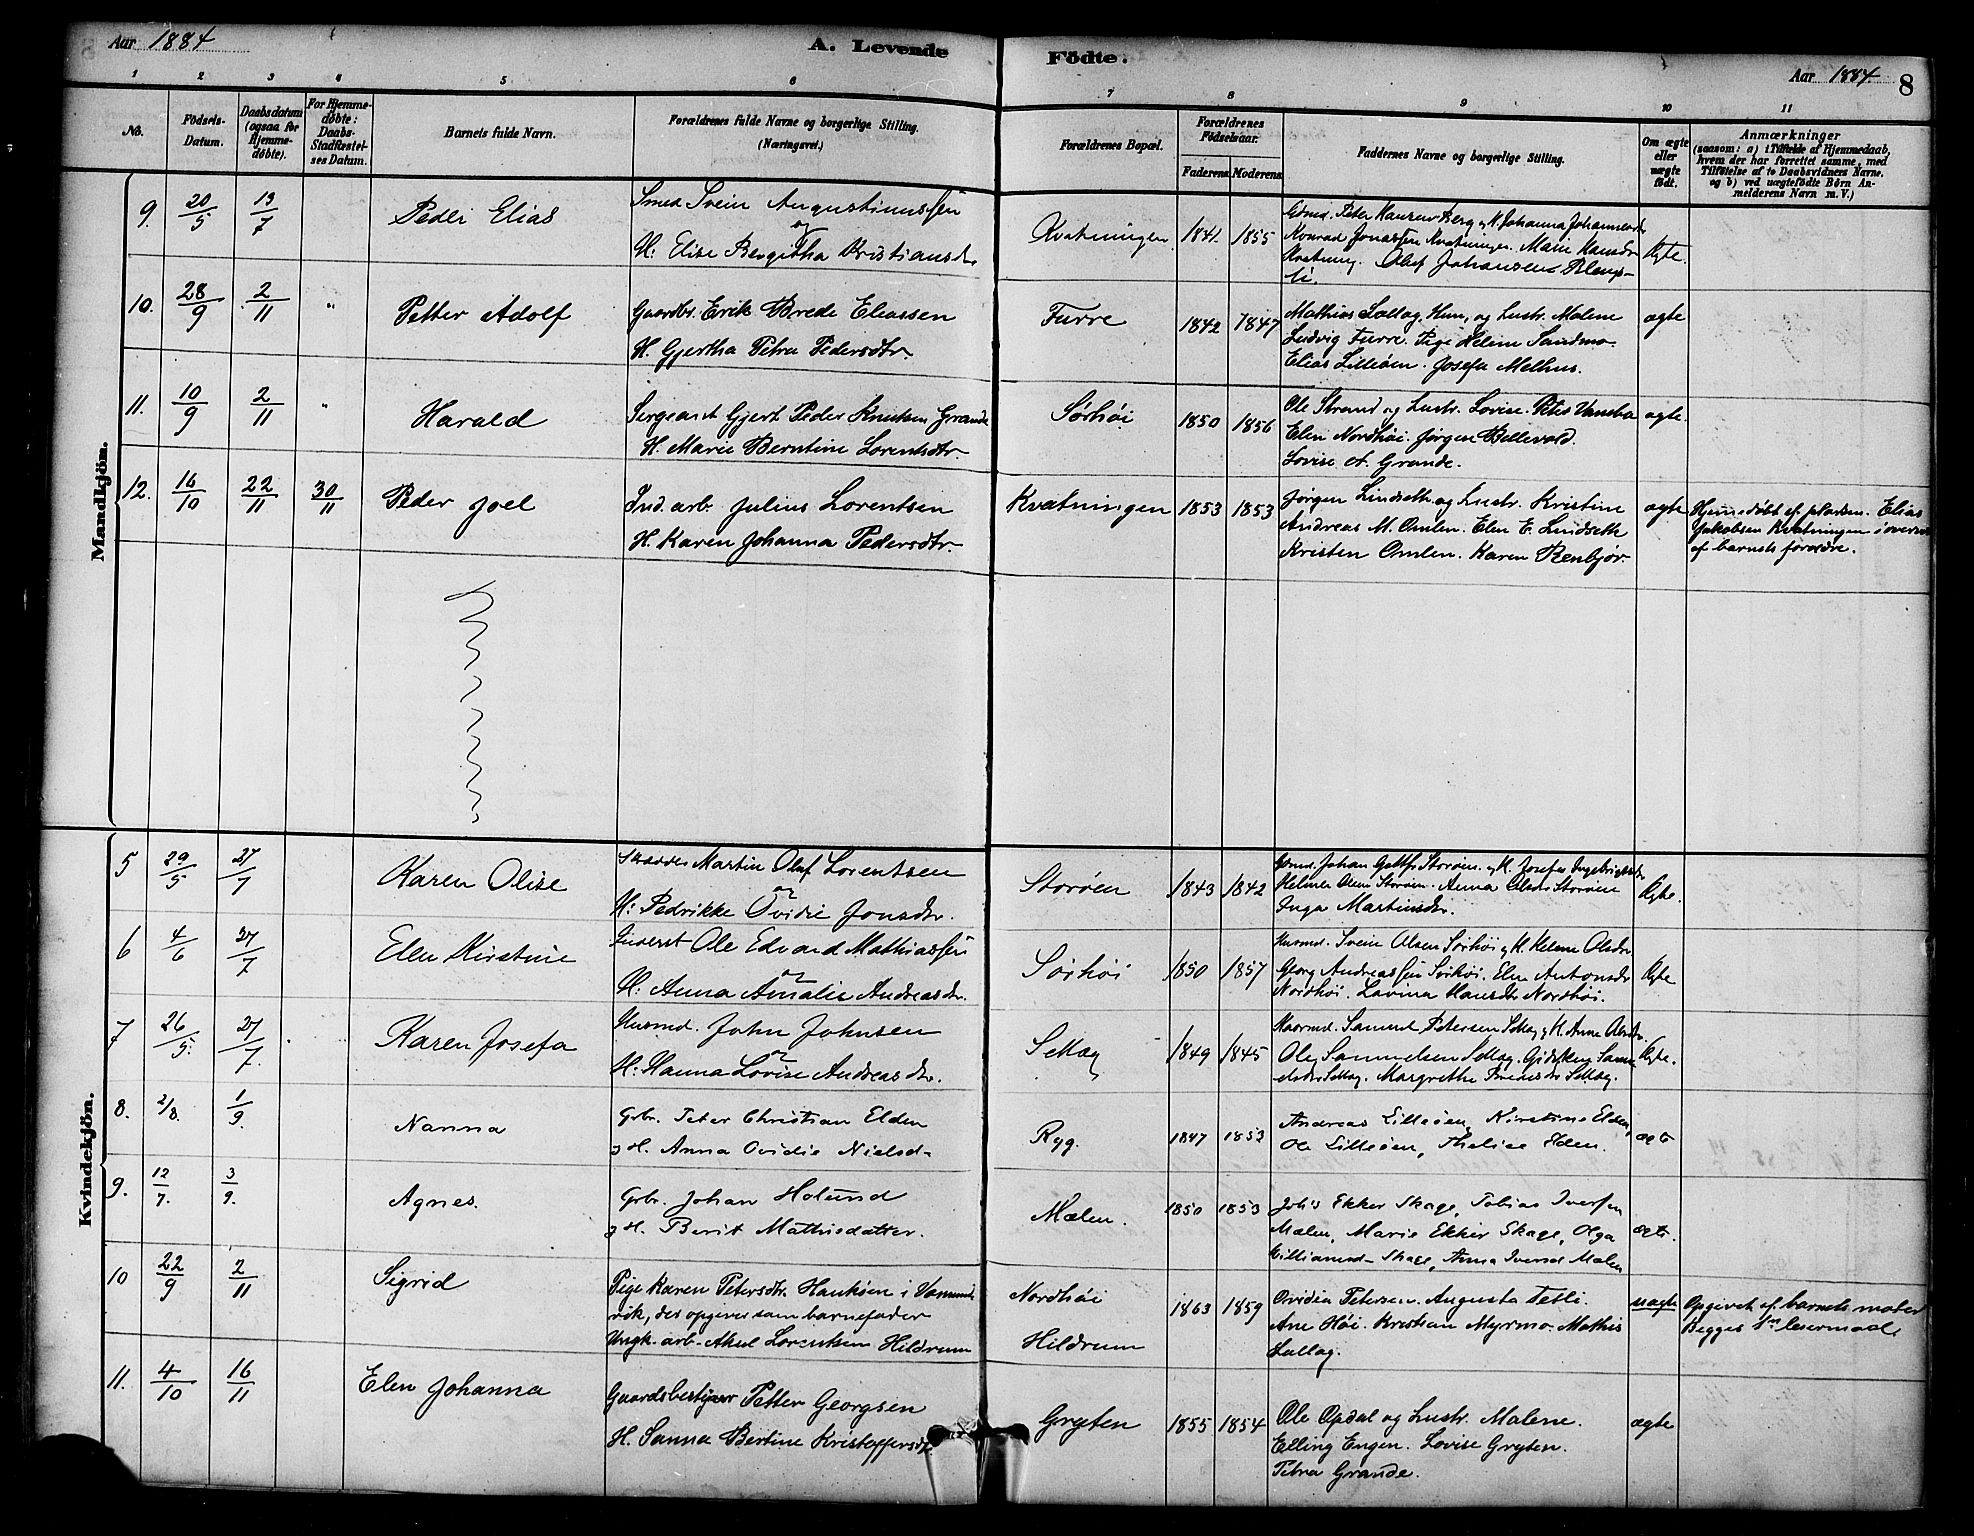 Aar 1884
A. Levende Födte.
Aar 1884.
8
1 2 3 4 5 6 7 8 9 10 11
No.
Födsels-Datum.
Daabsdatum (ogsaa for Hjemme-døbte).
For Hjemme-døbte: Daabs-Stadfæstel-ses Datum.
Barnets fulde Navn.
Forældrenes fulde Navne og borgerlige Stilling. (Næringsvei.)
Forældrenes Bopæl.
Forældrenes Födselsaar.
Faderens Moderens
Faddernes Navne og borgerlige Stilling.
Om ægte eller uægte födt.
Anmærkninger
(saasom: a) i Tilfælde af Hjemmedaab, hvem der har forrettet samme, med Tilföielse af to Daabsvidners Navne. og b) ved uægtefödte Børn An-melderens Navn m. V.)
Mandkjön.
9. 20/5 13/7 Peder Elias
Smed Svein Augustinussen
og
H: Elise Bergitha Kristiansdr.
Kvatningen 1841. 1855
Konrad Jonassen Kvatningen. Marie Hansdr
Kvatning. Oluf Johansen Blengs-
li.
Ægte.
10. 28/9 2/11 " Petter Adolf
Gaardbr. Erik Brede Eliassen
H. Gjertha Petra Pedersdtr.
Furre 1842 1847
Mathias Sællæg Hun, og Hustr. Malene
Ludvig Furre. Pige Heline Sandmo.
Elias Lilleöen. Josefa Melhus.
ægte
11. 10/9 2/11 " Harald
Sergeant Gjert Peder Knutsen Grande
H. Marie Berntine Lorentsdtr.
Sørhøi 1850 1856
Ole Strand og Hustr. Lovise.
Elen Nordhöi. Jörgen Bellevold.
Lovise A. Grande.
ægte.
12. 16/10 22/11 30/11 Peder Joel
Ind. arb. Julius Lorentsen
H. Karen Johanna Pedersdtr.
Kvatningen 1853 1853
Jørgen Lindseth og Hustr. Kristine
Andreas M. Omlen. Elen E. Lindseth
Kristen Omlen. Karen Renbjör.
ægte
Hjemmedöbt af pladsm. Elias
Jakobsen Kvatningen i overvær
af barnets forældre.
Kvindekjön.
5 29/5 27/7 Karen Olise
Skrædder Martin Oluf Lorentsen
og
H: Pedrikke Ovidie Jonsdr.
Storöen 1843 1842
Helmer Olsen Storöen. Anna Olsdr Storöen
Inga Martinsdr.
Ægte.
6 4/6 27/7 Elen Kirstine
Inderst Ole Edvard Mathiassen
og
H: Anna Amalie Andreasdr.
Sörhöi 1850 1857
Husmd. Svein Olsen Sörhöi og H. Helene Olsdr
Georg Andreassen Sörhöi. Elen Antonsdr
Nordhöi. Lavina Hansdr Nordhöi.
Ægte
7 26/5. 27/7. Karen Josefa
Husmd. John Johnsen
og
H: Hanna Lovise Andreasdr.
Sellæg 1849 1845
Husmd. Samuel Petersen Sellæg og H. Anne Olsdr.
Ole Samuelsen Sellæg. Gidsken Samu-
elsdr Sellæg. Margrethe Bredesdr Sellæg.
Ægte.
8. 2/8. 1/9. Nanna
Grbr. Peter Christian Elden
og H. Anna Ovidie Nielsd-
Ryg. 1847 1853
Andreas Lilleöen, Kirstine Elden,
Ole Lilleöen, Thalise Elden.
ægte
9. 12/7. 3/9. Agnes.
Grbr. Johan Holund
og H. Berit Mathisdatter.
Mælen. 1850 1853
Johs Ekker Skage, Tobias Iversen
Mælen, Marie Ekker Skage, Olga
Williamsd- Skage, Anna Iversd Mælen
ægte.
10 22/9 2/11 Sigrid
Pige Karen Petersdtr. Hanköen i Vemunds-
vik, der opgiver som barnefader
Ungk. arb. Axel Lorentsen Hildrum
Nordhöi
Hildrum
1863 1859
Ovidia Petersen. Augusta Tetli.
Ane Höi. Kristian Myrmo. Mathis
Sellæg.
uægte
Opgivet af barnets moder
Begges 1ste leiermaal
11. 4/10 16/11 Elen Johanna
Gaardsbestyrer Petter Georgsen
H. Sanna Bertine Kristoffersdtr
Gryten 1855 1854
Ole Opdal og Hustr. Malene.
Elling Engen. Lovise Gryten.
Petra Grande.
ægte